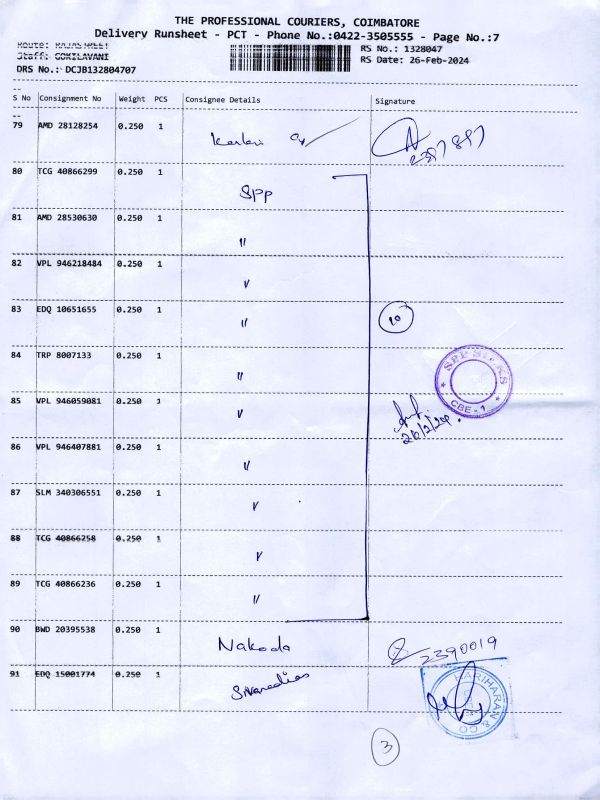 THE PROFESSIONAL COURIERS, COIMBATORE
Delivery Runsheet - PCT - Phone No.:0422-3505555 - Page No.:7
Route: RAJASTREET
RS No.: 1328047
Staff: GOKILAVANI
RS Date: 26-Feb-2024
DRS No.: DCJB132804707
S No Consignment No Weight PCS Consignee Details Signature
79 AMD 28128254 0.250 1
2397897
80 TCG 40866299 0.250 1 SPP
81 AMD 28530630 0.250 1 "
82 VPL 946218484 0.250 1 "
83 EDQ 10651655 0.250 1 " 10
84 TRP 8007133 0.250 1 "
SPP SILKS
CBE - 1
85 VPL 946059081 0.250 1 "
26/2/24
86 VPL 946407881 0.250 1 "
87 SLM 340306551 0.250 1 "
88 TCG 40866258 0.250 1 "
89 TCG 40866236 0.250 1 "
90 BWD 20395538 0.250 1 Nakoda 2390019
91 EDQ 15001774 0.250 1
HARIHARAN & CO
3